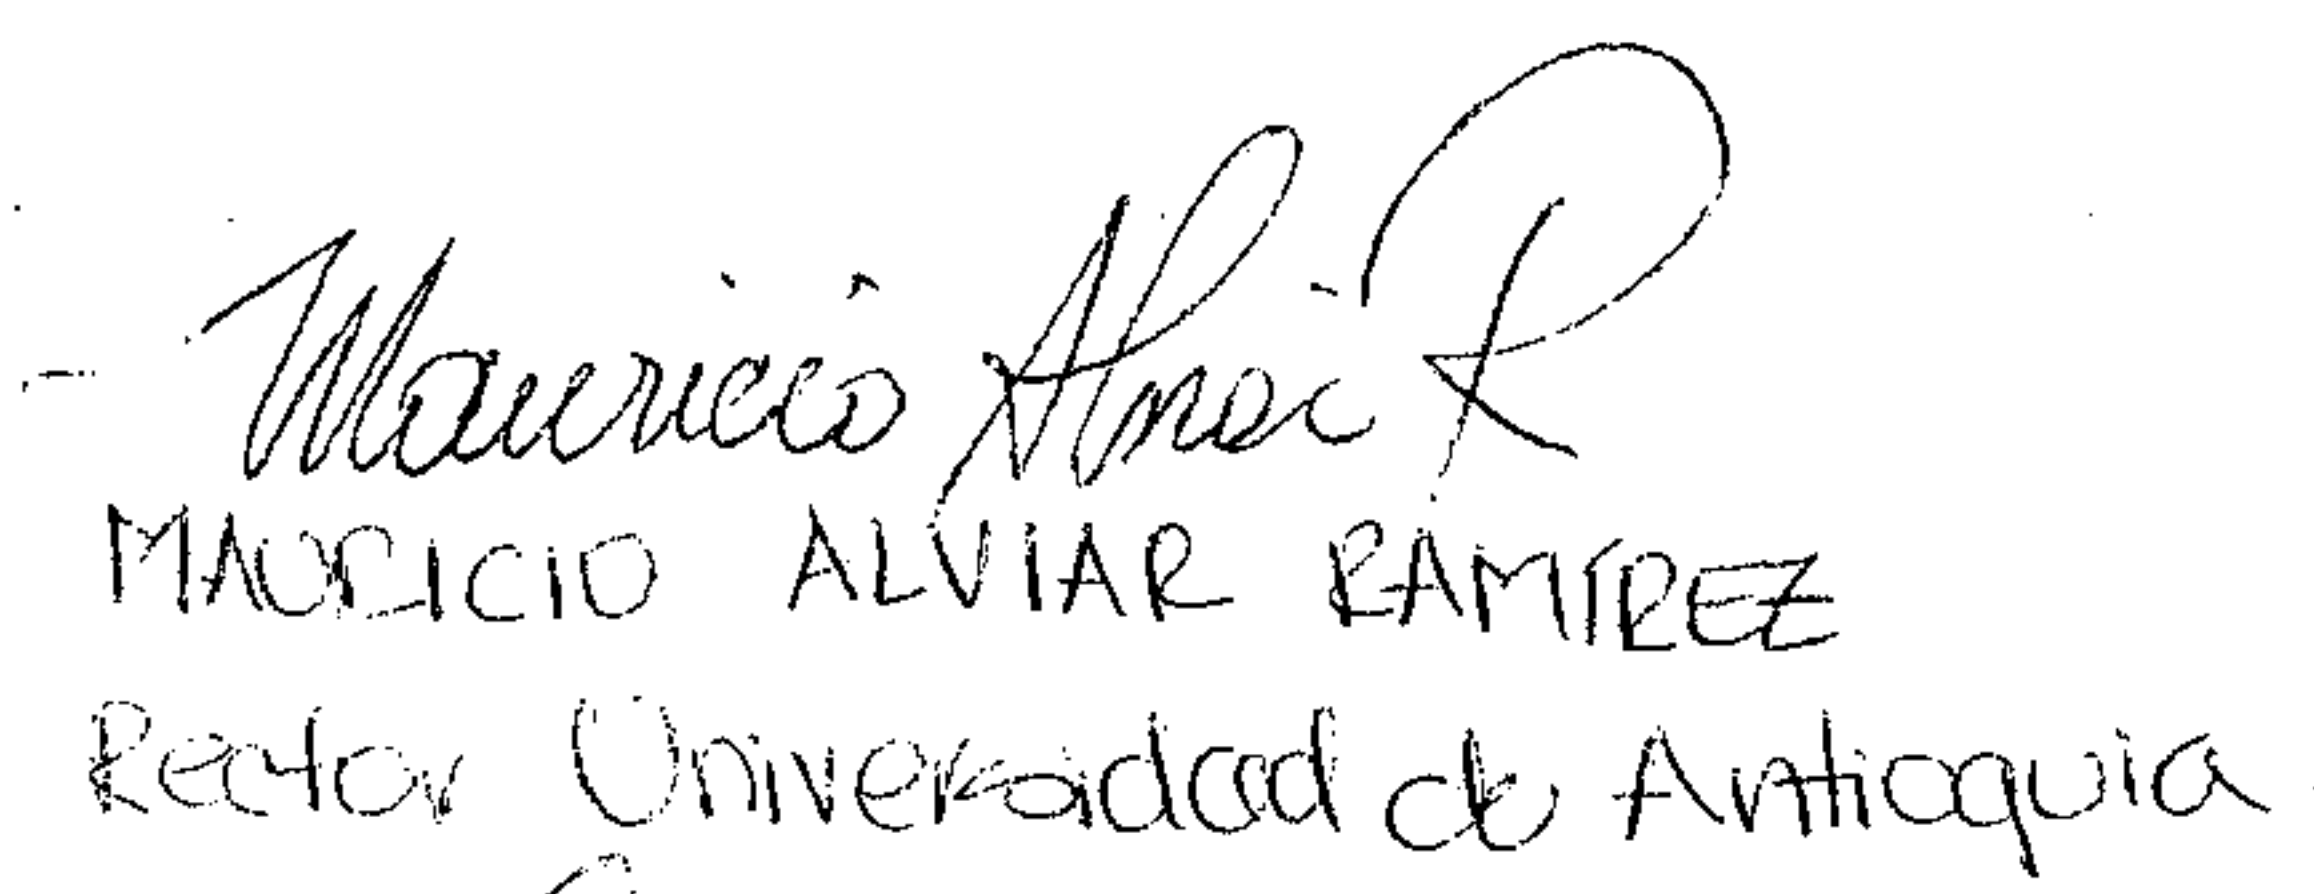 Mauricio Alviar R
MAURICIO ALVIAR RAMIREZ
Rector Universidad de Antioquia